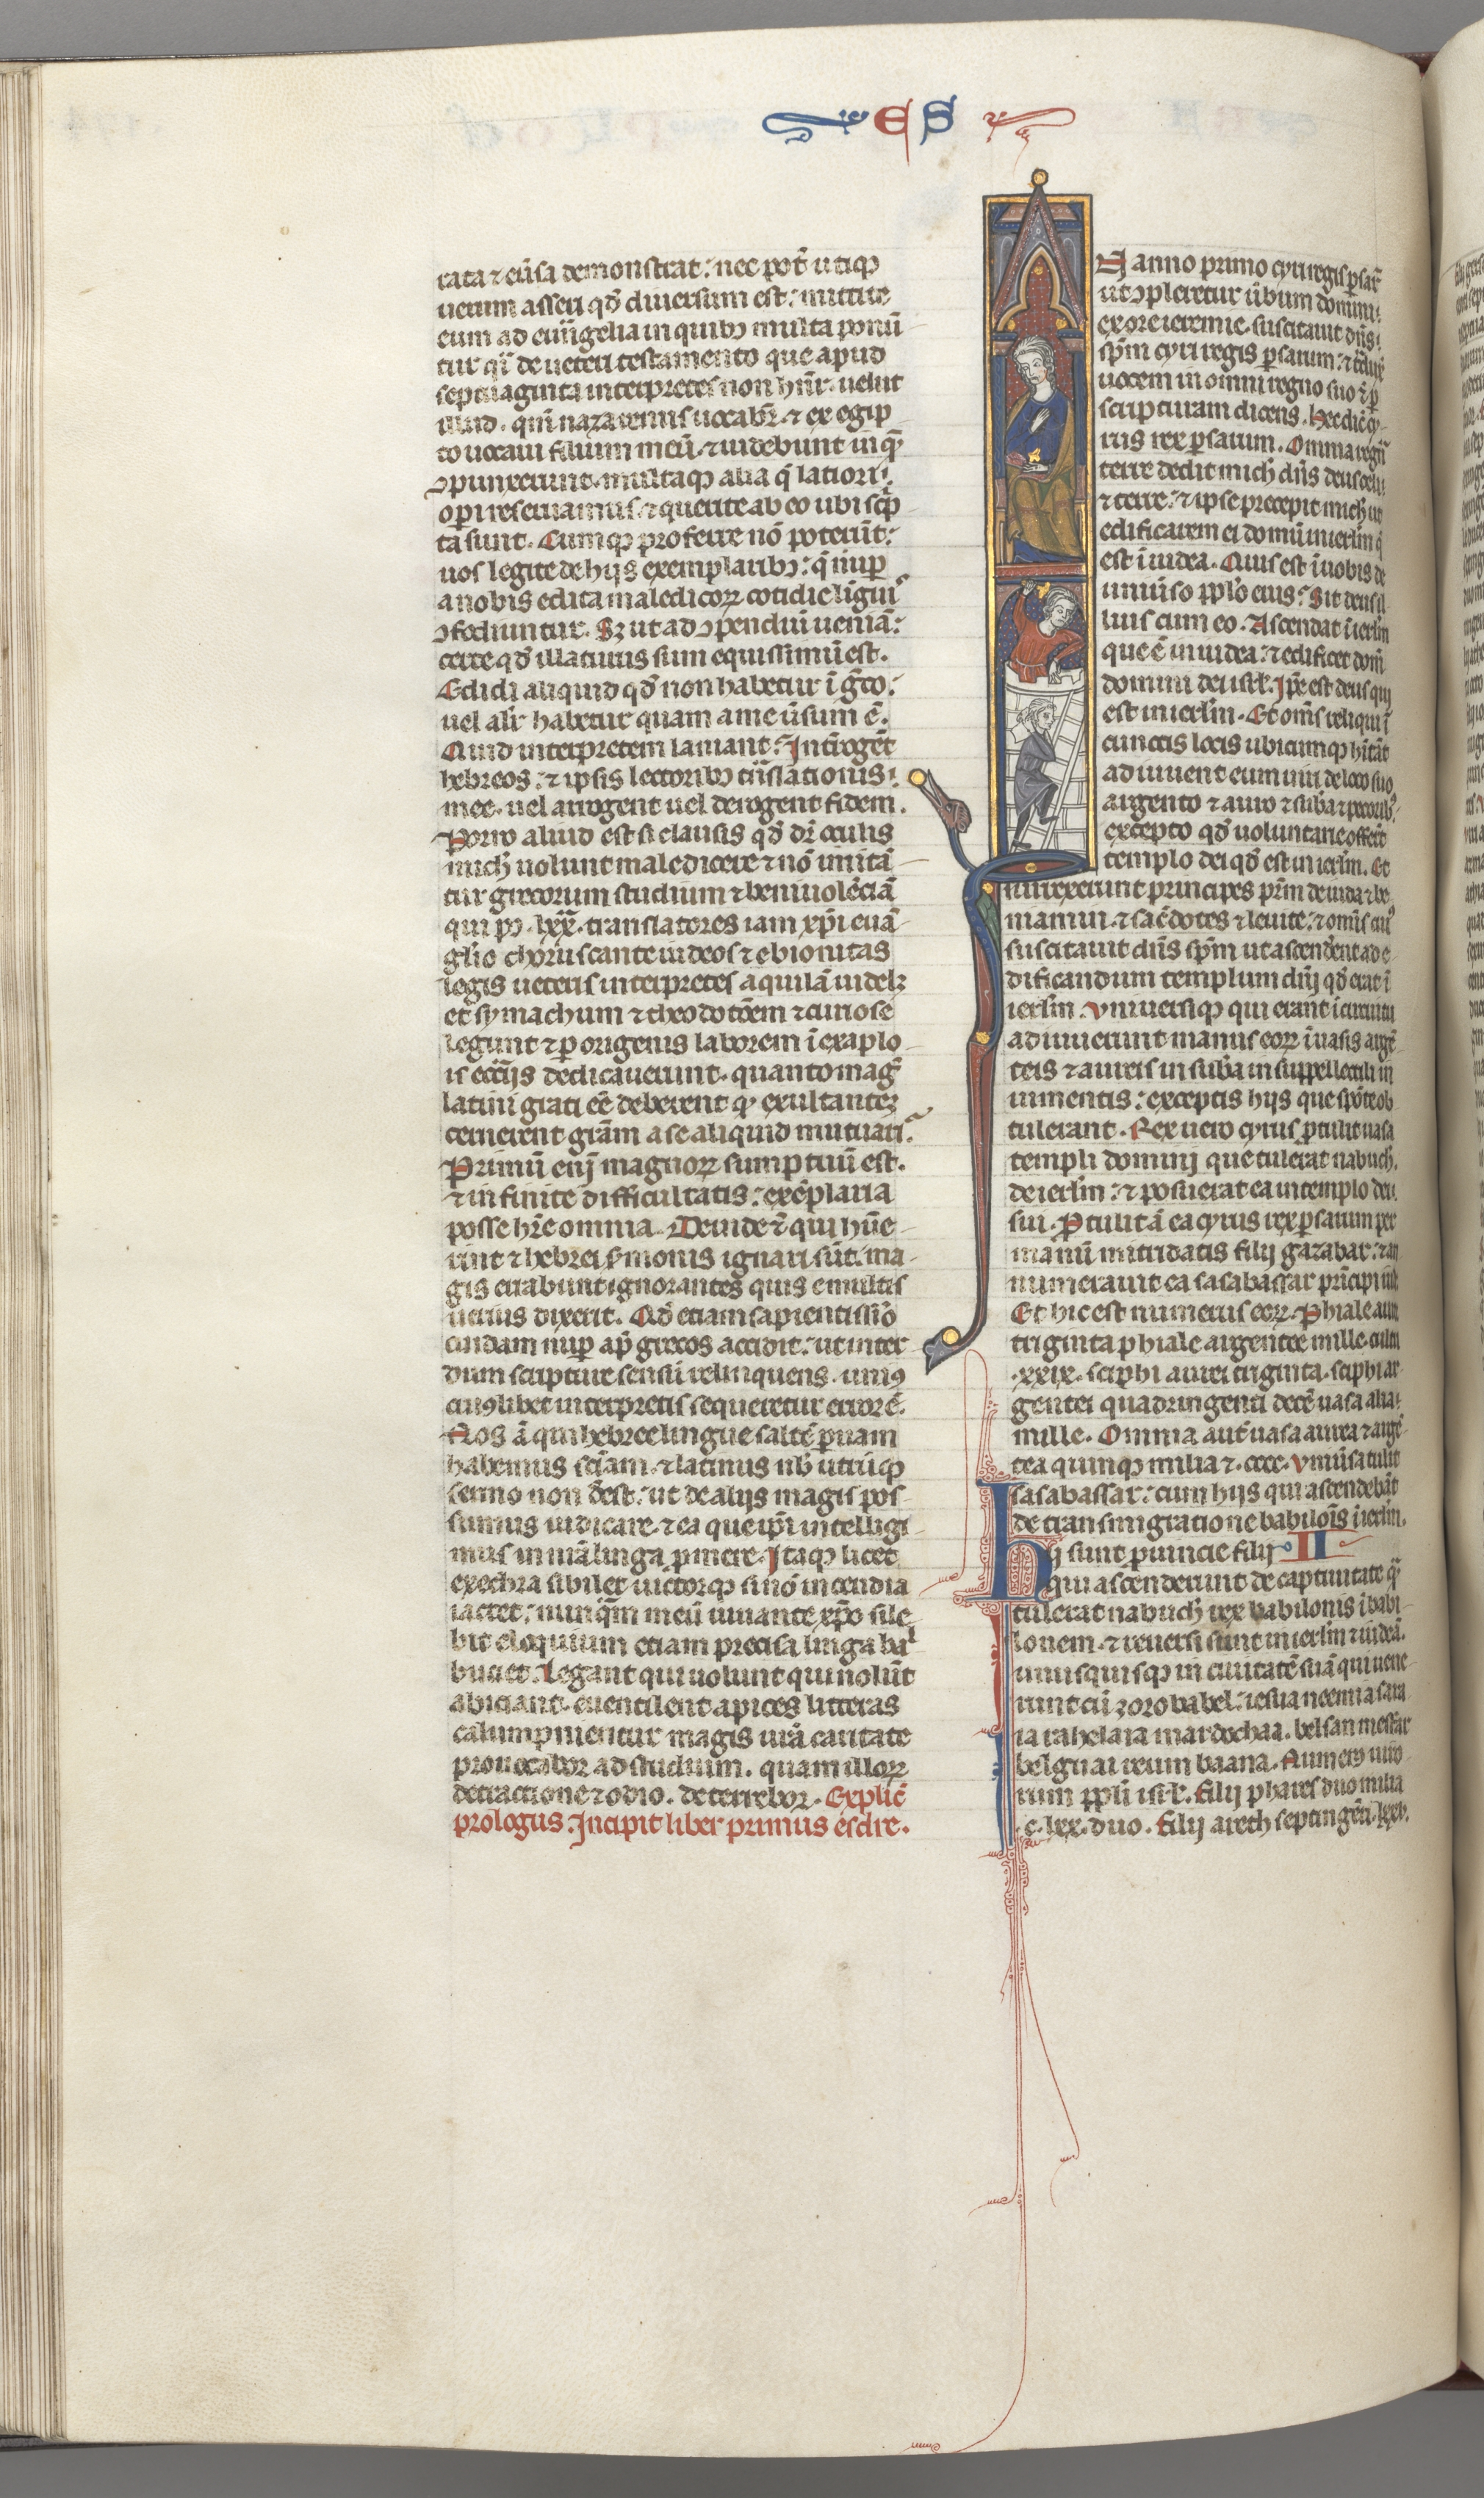 ES
tata ⁊ eũsa demonstrat: nec pot̃ utiqꝫ
uerum asseri qđ diuersum est: mittite
eum ad euãngelia in quibꝫ multa ponũ
tur q̃si de ueteri testamento que apud
septuaginta interpretes non hñtr̃. uelut
illud. qm̃ nazarenus uocabr̃. ⁊ ex egip
to uocaui filium meũ. ⁊ uidebunt in quẽ
ↄpunxerunt. multaqꝫ alia q̃ latiori
oꝑi reseruamus. ⁊ querite ab eo ubi scp̃
ta sunt. Cumqꝫ proferre nõ poterũt:
uos legite de hijs exemplaribꝫ: q̃ nuꝑ
a nobis edita maledicoꝝ cotidie linguis
ↄfodiuntur. Sꝫ ut ad ↄpendium ueniã:
certe qđ illaturus sum equissimũ est.
Edidi aliquid qđ non habetur ĩ g̃co:
uel alir̃ habetur quam a me ũsum ẽ.
Quid interpretem laniant: Introgẽt
hebreos: ⁊ ipsis lectoribꝫ trãslationis
mee. uel arrogent uel derogent fidem.
Porro aliud est si clausis qđ dr̃ oculis
mich̃ uolunt maledicere ⁊ nõ imitã
tur grecorum studium ⁊ beniuolẽciã
qui pꝰ. lxx. translatores iam xp̃i euã
glio choruscante iudeos ⁊ ebionitas
legis ueteris interpretes aquilã uidelꝫ
et symachum ⁊ theodotõem ⁊ curiose
legunt ⁊ ꝑ origenis laborem ĩ exaplo
is ecc̃ijs dedicauerunt. quanto mag̃
latini grati eẽ deberent qꝫ exultantẽ
cernerent gr̃am a se aliquid mutuari.
Primũ enĩ magnoꝝ sumptuũ est.
⁊ infinite difficultatis: exẽplaria
posse hr̃e omnia. Deinde ⁊̃ qui hũe
rint ⁊ hebrei sermonis ignari sũt. ma
gis errabunt ignorantes quis e multis
uerius dixerit. Qđ etiam sapientissĩo
cuidam nuꝑ ap̃ grecos accidit: ut inter
dum scripture sensũ relinquens. uniꝰ
cuiꝰlibet interpretis sequeretur errorẽ.
Nos ã qui hebree lingue saltẽ ꝑuam
habemus sciãm. ⁊ latinus nõb utcũqꝫ
sermo non deest: ut de alijs magis pos
sumus iudicare. ⁊ ea que ip̃i intelligi
mus in nr̃a linga ꝓmere. Itaqꝫ licet
exechra sibilet uictorqꝫ sinon incendia
iactet: nunq̃m meũ iuuante xp̃o sile
bit eloquium etiam precisa linga bal
butiet. Legant qui uolunt qui nolũt
abiciant. euentilent apices litteras
calumpnientur magis ur̃a caritate
prouocabor ad studium. quam illoꝝ
detractione ⁊ odio. deterrebor. Explic̃
prologus. Incipit liber primus esdre.
In anno primo cyri regis psaꝝ
ut ↄpleretur ũbum domini
ex ore ieremie. suscitauit dñs
sp̃m cyri regis ꝑsarum: ⁊ t̃duxit
uocem in omni regno suo ⁊̃ ꝑ
scripturam dicens. Hec dic̃ cy
rus rex ꝑsarum. Omnia regna
terre dedit mich̃ dñs deus celi
⁊ terre: ⁊ ipse precepit mich̃ ut
edificarem ei domũ in ierl̃m q̃
est ĩ iudea. Quis est ĩ uobis de
uniũso pplo eius: Sit deus il
lius cum eo. Ascendat ĩ ierl̃m
que ẽ in iudea: ⁊ edificet domũ
domini dei isrl̃. Ip̃e est deus qui
est in ierl̃m. Et om̃s reliqui ĩ
cunctis locis ubicumqꝫ hĩtãt
adiuuent eum uiri de loco suo
argento ⁊ auro ⁊ suba ⁊ pecoribꝫ
excepto qđ uoluntarie offerũt
templo dei qđ est in ierl̃m. Et
surrexerunt principes pr̃m de iuda ⁊ be
niamin. ⁊ sac̃dotes ⁊ leuite: ⁊ omĩs cuiꝰ
suscitauit dñs sp̃m ut ascenderent ad e
dificandum templum dñi qđ erat ĩ
ierl̃m. Vniuersiqꝫ qui erant ĩ circuitu
adiuuerunt manus eoꝝ ĩ uasis argẽ
teis ⁊ aureis in suba in suppellectili in
iumentis: exceptis hijs que spõte ob
tulerant. Rex uero cyrus ꝓtulit uasa
templi domini que tulerat nabuch.
de ierl̃m: ⁊ posuerat ea in templo dei
sui. Ptulit ã ea cyrus rex ꝑsarum per
manũ mitridatis filij gazabar: ⁊ an
numerauit ea sasabassar pr̃icipi iude
Et hic est numerus eoꝝ. Phiale auree
triginta phiale argentee mille. cultri
.xxix. sciphi aurei triginta. sciphi ar
gentei quadringenti decẽ. uasa alia
mille. Omnia aut̃ uasa aurea ⁊ argẽ
tea quinqꝫ milia ⁊. cccc. Vniũsa tulit
sasabassar: cum hijs qui ascendebãt
de transmigratione babilois ĩ ierl̃m.
hij sunt ꝓuincie filij II
qui ascenderunt de captiuitate quã
tulerat nabuch̃ rex babilonis ĩ babi
lonem. ⁊ reuersi sunt in ierl̃m ⁊ iudeã.
unusquisqꝫ in ciuitatẽ suã qui uene
runt cũ zorobabel: iesua neemia sara
ia rahelaia mardochaa. belsan mesfar
belguai reum baana. Numerꝰ uiro
rum ppli isrl̃. Filij phares duo milia
.c. lxx. duo. Filij areth septingẽti. lxxv.